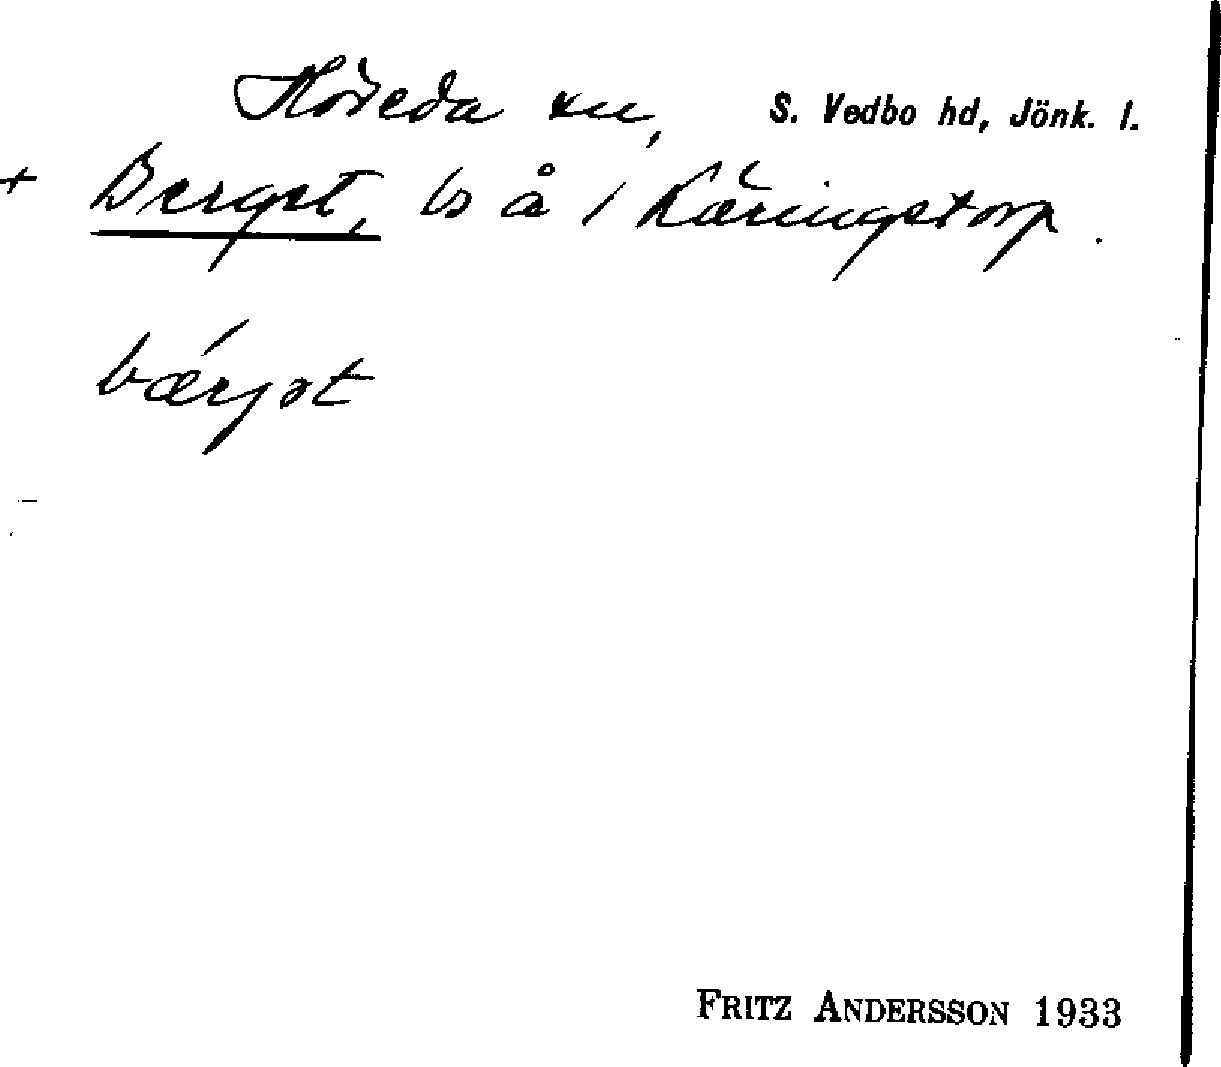 Höreda sn, S. Vedbo hd, Jönk. l.
+ Berget, ls å 1 Käringstorp.
bærjət
FRITZ ANDERSSON 1933